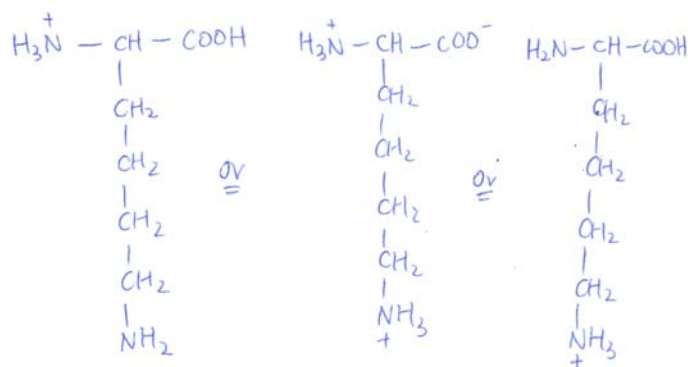 H₃N⁺ — CH — COOH
CH₂
CH₂
CH₂
CH₂
NH₂
or
H₃N⁺ — CH — COO⁻
CH₂
CH₂
CH₂
CH₂
NH₃⁺
or
H₂N — CH — COOH
CH₂
CH₂
CH₂
CH₂
NH₃⁺